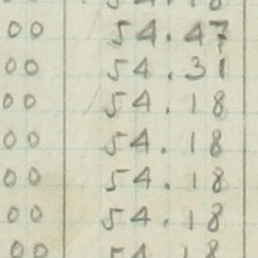 54.18
00 54.47
00 54.31
00 54.18
00 54.18
00 54.18
00 54.18
00 54.18